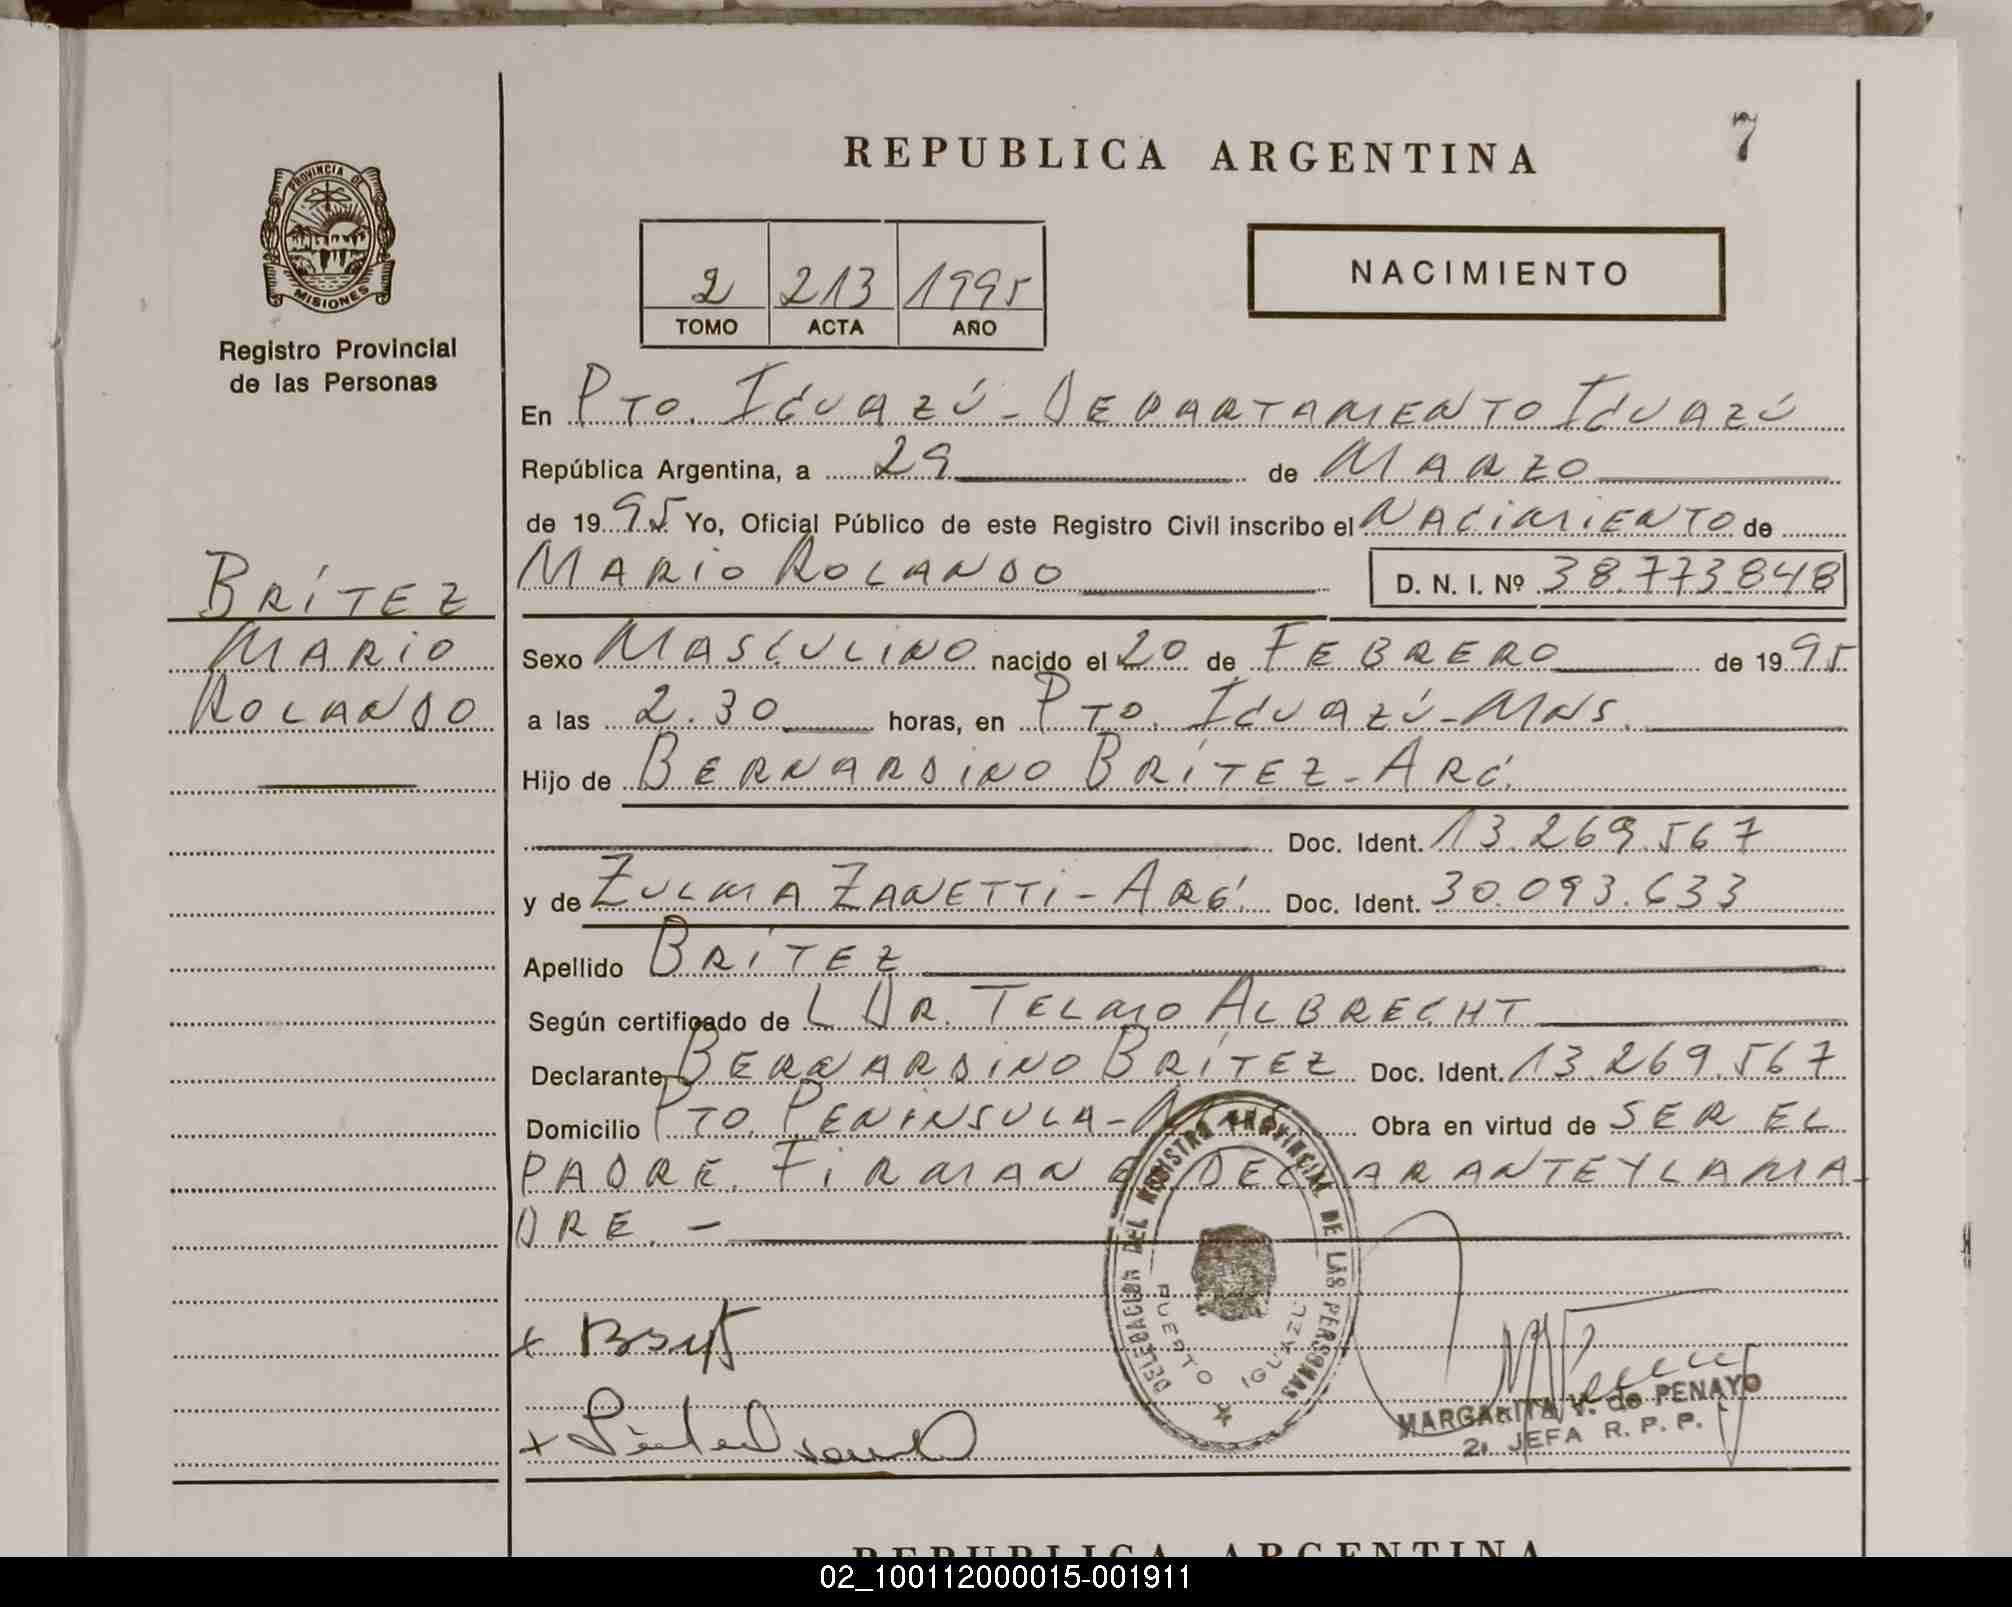 REPUBLICA ARGENTINA
7
PROVINCIA DE
MISIONES
Registro Provincial
de las Personas
2 213 1995
TOMO ACTA AÑO
NACIMIENTO
En PTO. IGUAZÚ - DEPARTAMENTO IGUAZÚ
República Argentina, a 29 de MARZO
de 1995. Yo, Oficial Público de este Registro Civil inscribo el NACIMIENTO de
MARIO ROLANDO D. N. I. Nº 38.773.848
BRÍTEZ
MARIO
ROLANDO
Sexo MASCULINO nacido el 20 de FEBRERO de 1995
a las 2.30 horas, en PTO. IGUAZÚ - MNS.
Hijo de BERNARDINO BRÍTEZ - ARG.
Doc. Ident. 13.269.567
y de ZULMA ZANETTI - ARG. Doc. Ident. 30.093.633
Apellido BRÍTEZ
Según certificado de L DR. TELMO ALBRECHT
Declarante BERNARDINO BRÍTEZ Doc. Ident. 13.269.567
Domicilio PTO. PENINSULA - Obra en virtud de SER EL
PADRE. FIRMAN EL DECLARANTE Y LA MA-
DRE. -
DELEGACION DEL REGISTRO PROVINCIAL DE LAS PERSONAS
PUERTO IGUAZU
MARGARITA V. de PENAYO
2. JEFA R. P. P.
REPUBLICA ARGENTINA
02_100112000015-001911